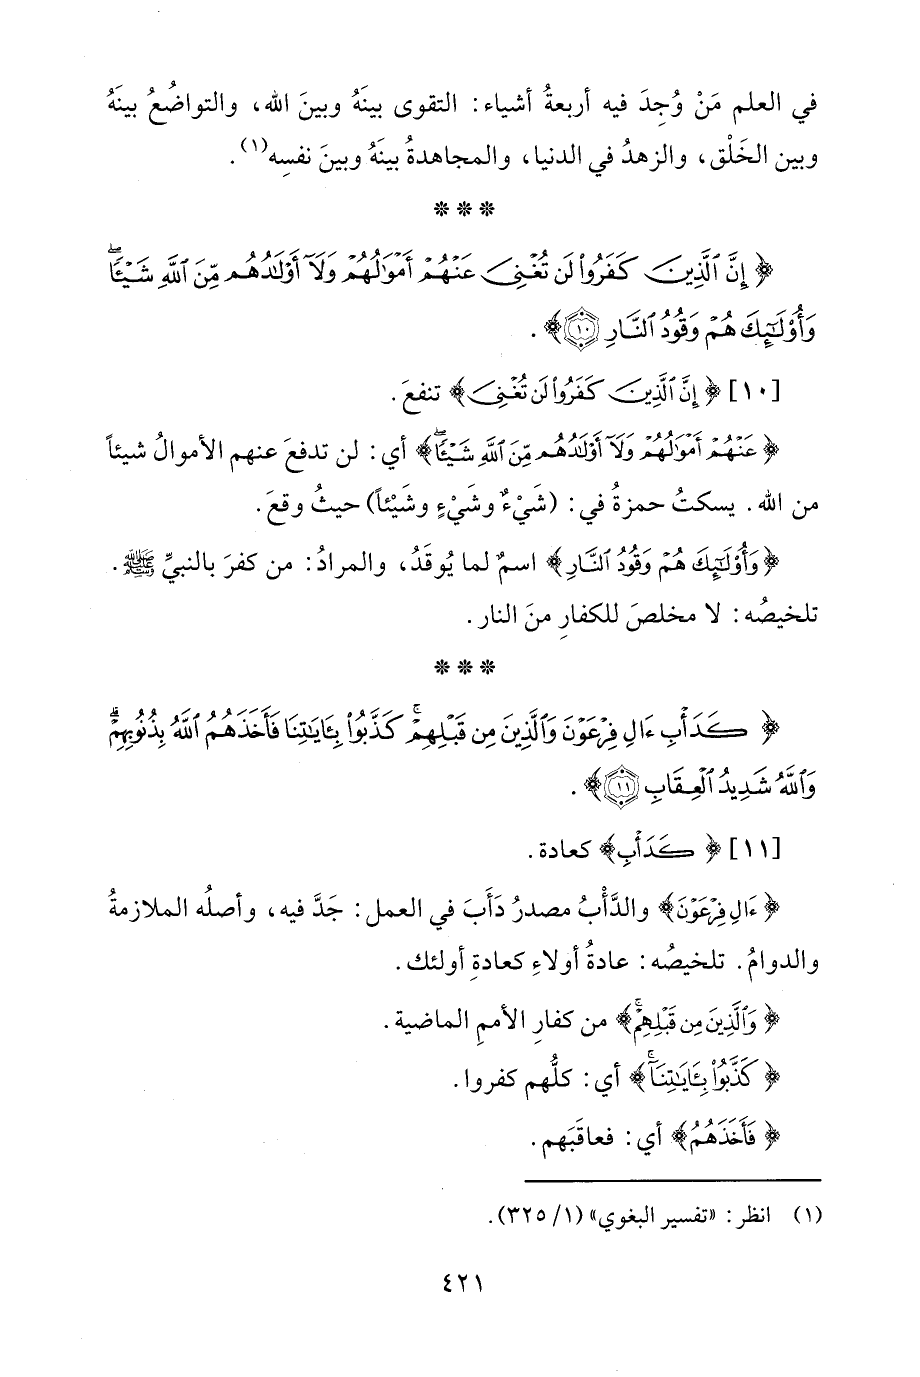 في العلم مَنْ وُجِدَ فيه أربعةُ أشياء: التقوى بينَهُ وبينَ الله، والتواضُعُ بينَهُ
وبين الخَلْق، والزهدُ في الدنيا، والمجاهدةُ بينَهُ وبينَ نفسِه(١).
* * *
﴿ إِنَّ ٱلَّذِينَ كَفَرُواْ لَن تُغْنِىَ عَنْهُمْ أَمْوَٰلُهُمْ وَلَآ أَوْلَٰدُهُم مِّنَ ٱللَّهِ شَيْـًٔاۖ
وَأُوْلَٰٓئِكَ هُمْ وَقُودُ ٱلنَّارِ ١٠﴾.
[١٠] ﴿ إِنَّ ٱلَّذِينَ كَفَرُواْ لَن تُغْنِىَ ﴾ تنفعَ.
﴿ عَنْهُمْ أَمْوَٰلُهُمْ وَلَآ أَوْلَٰدُهُم مِّنَ ٱللَّهِ شَيْـًٔاۖ ﴾ أي: لن تدفعَ عنهم الأموالُ شيئاً
من الله. يسكتُ حمزةُ في: (شَيْءٌ وشَيْءٍ وشَيْئاً) حيثُ وقعَ.
﴿ وَأُوْلَٰٓئِكَ هُمْ وَقُودُ ٱلنَّارِ ﴾ اسمٌ لما يُوقَدُ، والمرادُ: من كفرَ بالنبيِّ ﷺ.
تلخيصُه: لا مخلصَ للكفارِ منَ النار.
* * *
﴿ كَدَأْبِ ءَالِ فِرْعَوْنَ وَٱلَّذِينَ مِن قَبْلِهِمْۚ كَذَّبُواْ بِـَٔايَٰتِنَا فَأَخَذَهُمُ ٱللَّهُ بِذُنُوبِهِمْۗ
وَٱللَّهُ شَدِيدُ ٱلْعِقَابِ ١١﴾.
[١١] ﴿ كَدَأْبِ ﴾ كعادة.
﴿ ءَالِ فِرْعَوْنَ ﴾ والدَّأْبُ مصدرُ دَأَبَ في العمل: جَدَّ فيه، وأصلُه الملازمةُ
والدوامُ. تلخيصُه: عادةُ أولاءِ كعادةِ أولئك.
﴿ وَٱلَّذِينَ مِن قَبْلِهِمْۚ ﴾ من كفارِ الأممِ الماضية.
﴿ كَذَّبُواْ بِـَٔايَٰتِنَا ﴾ أي: كلُّهم كفروا.
﴿ فَأَخَذَهُمُ ﴾ أي: فعاقَبَهم.
(١) انظر: «تفسير البغوي» (١/ ٣٢٥).
٤٢١